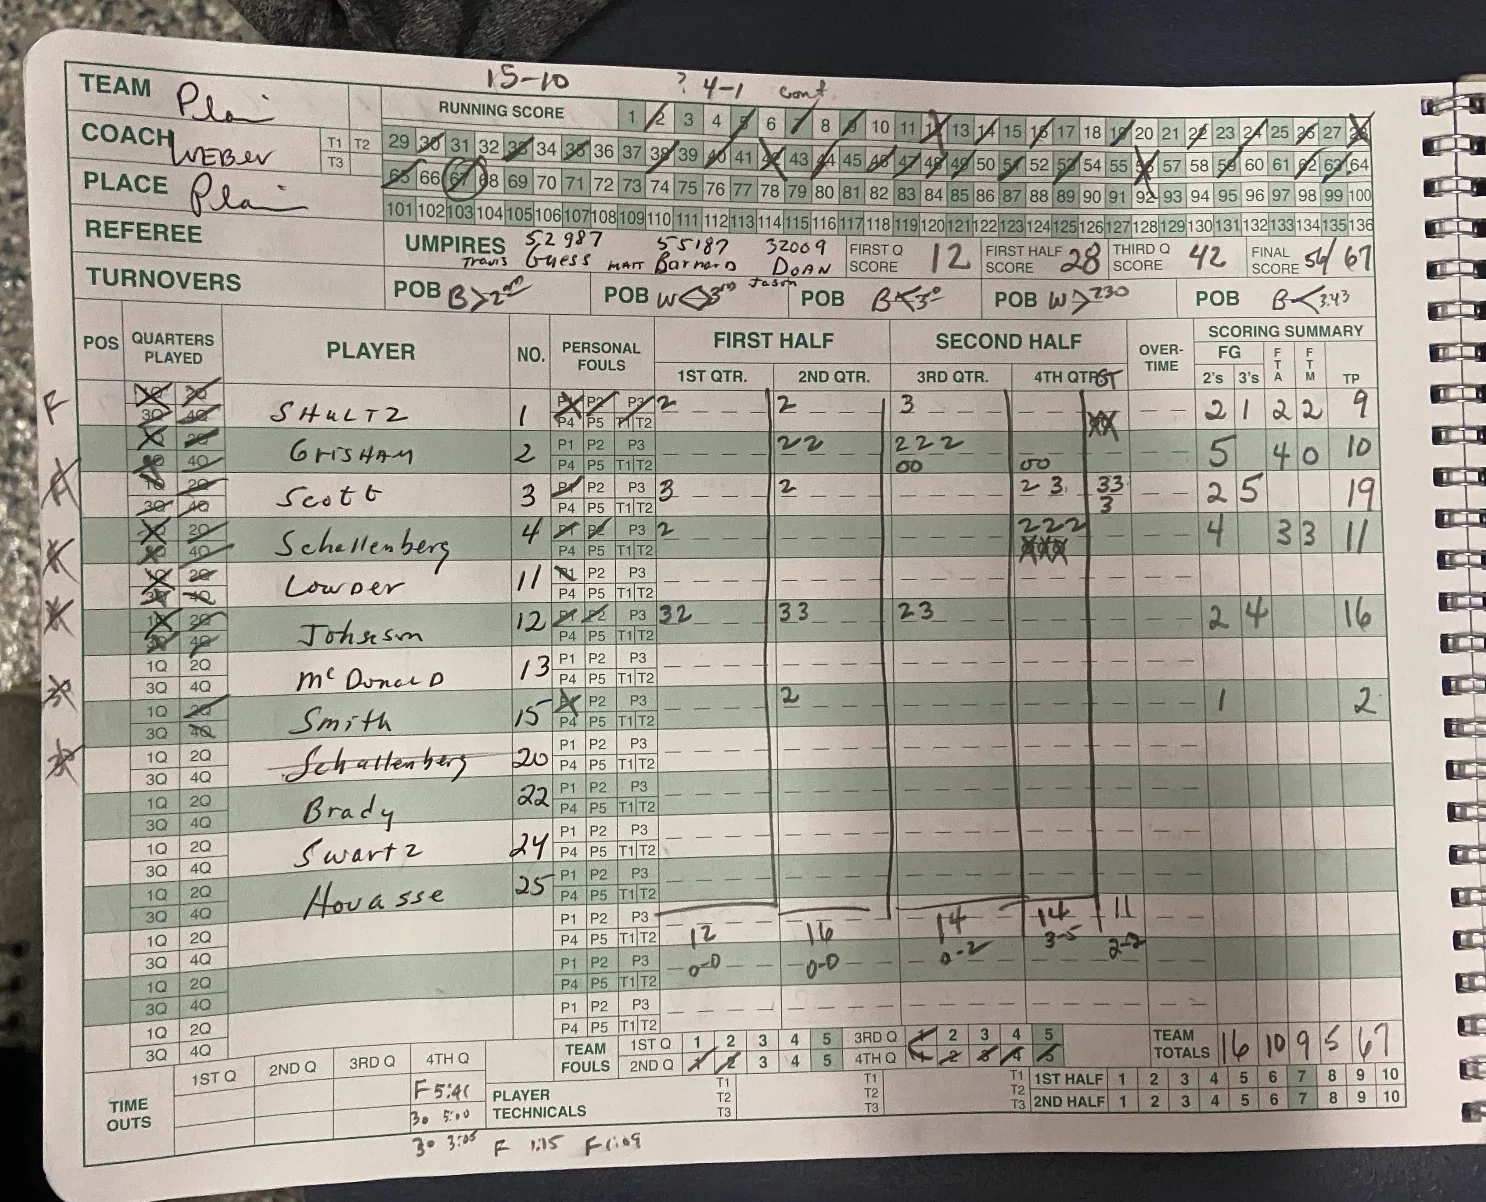 15-10 ? 4-1 conf.
TEAM Plain
RUNNING SCORE 1 2 3 4 5 6 7 8 9 10 11 12 13 14 15 16 17 18 19 20 21 22 23 24 25 26 27 28
COACH WEBER T1 T2 T3
29 30 31 32 33 34 35 36 37 38 39 40 41 42 43 44 45 46 47 48 49 50 51 52 53 54 55 56 57 58 59 60 61 62 63 64
PLACE Plain
65 66 67 68 69 70 71 72 73 74 75 76 77 78 79 80 81 82 83 84 85 86 87 88 89 90 91 92 93 94 95 96 97 98 99 100
101 102 103 104 105 106 107 108 109 110 111 112 113 114 115 116 117 118 119 120 121 122 123 124 125 126 127 128 129 130 131 132 133 134 135 136
REFEREE
UMPIRES 52987 55187 32009
Travis Guess MATT Barnard Jason DOAN
FIRST Q SCORE 12 FIRST HALF SCORE 28 THIRD Q SCORE 42 FINAL SCORE 56/67
TURNOVERS POB B>2nd POB W<>3rd POB B<30 POB W>230 POB B<3:43
POS QUARTERS PLAYED PLAYER NO. PERSONAL FOULS FIRST HALF SECOND HALF OVER-TIME SCORING SUMMARY
1ST QTR. 2ND QTR. 3RD QTR. 4TH QTR. OT FG 2's 3's FTA FTM TP
F 1Q 2Q 3Q 4Q SHULTZ 1 P1 P2 P3 P4 P5 T1 T2 2 2 3 XX 2 1 2 2 9
1Q 2Q 3Q 4Q GrisHAM 2 P1 P2 P3 P4 P5 T1 T2 22 222 00 00 5 4 0 10
1Q 2Q 3Q 4Q Scott 3 P1 P2 P3 P4 P5 T1 T2 3 2 2 3 33 3 2 5 19
1Q 2Q 3Q 4Q Schallenberg 4 P1 P2 P3 P4 P5 T1 T2 2 222 XXX 4 3 3 11
1Q 2Q 3Q 4Q Lowder 11 P1 P2 P3 P4 P5 T1 T2
1Q 2Q 3Q 4Q Johnson 12 P1 P2 P3 P4 P5 T1 T2 32 33 23 2 4 16
1Q 2Q 3Q 4Q McDonald 13 P1 P2 P3 P4 P5 T1 T2
1Q 2Q 3Q 4Q Smith 15 P1 P2 P3 P4 P5 T1 T2 2 1 2
1Q 2Q 3Q 4Q Schallenberg 20 P1 P2 P3 P4 P5 T1 T2
1Q 2Q 3Q 4Q Brady 22 P1 P2 P3 P4 P5 T1 T2
1Q 2Q 3Q 4Q Swartz 24 P1 P2 P3 P4 P5 T1 T2
1Q 2Q 3Q 4Q Hovasse 25 P1 P2 P3 P4 P5 T1 T2
1Q 2Q 3Q 4Q P1 P2 P3 P4 P5 T1 T2 12 16 14 14 11
3-5 2-2
1Q 2Q 3Q 4Q P1 P2 P3 P4 P5 T1 T2 0-0 0-0 0-2
1Q 2Q 3Q 4Q P1 P2 P3 P4 P5 T1 T2
TEAM FOULS 1ST Q 1 2 3 4 5 3RD Q 1 2 3 4 5 TEAM TOTALS 16 10 9 5 67
2ND Q 1 2 3 4 5 4TH Q 1 2 3 4 5
TIME OUTS 1ST Q 2ND Q 3RD Q 4TH Q
F 5:41
30 5:00
30 3:05 F 1:15 F 1:09
PLAYER TECHNICALS T1 T2 T3 T1 T2 T3 T1 T2 T3
1ST HALF 1 2 3 4 5 6 7 8 9 10
2ND HALF 1 2 3 4 5 6 7 8 9 10